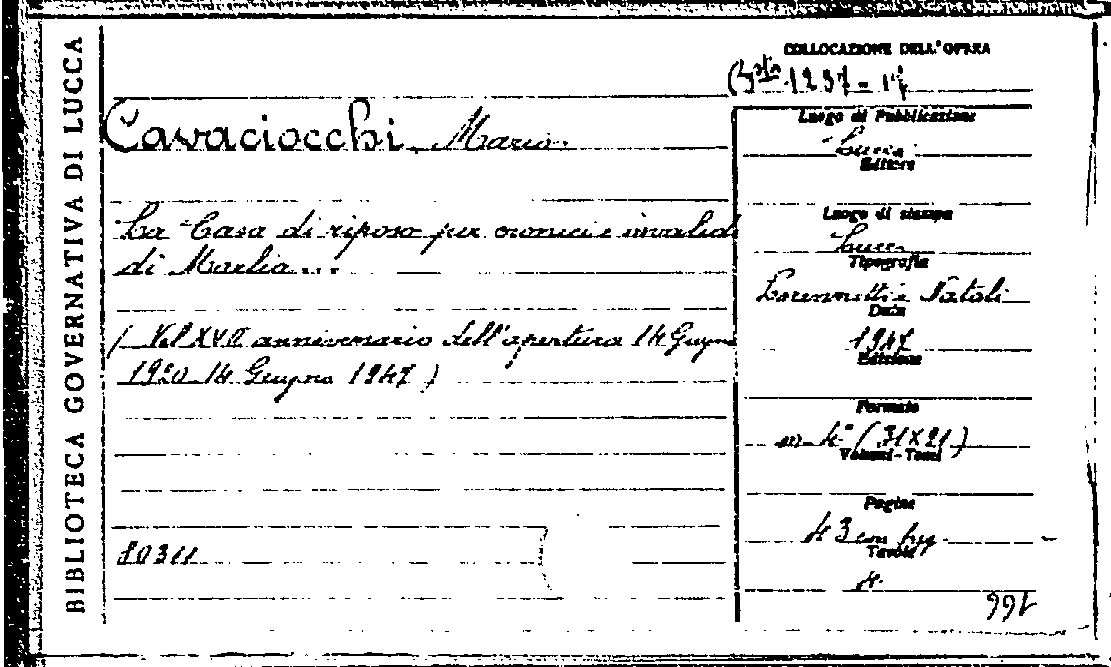 BIBLIOTECA GOVERNATIVA DI LUCCA
COLLOCAZIONE DELL'OPERA
Bsta 1237-17
Cavaciocchi Mario.
Luogo di Pubblicazione
Lucca
Editore
La Casa di riposo per cronici e invalidi
di Marlia...
Luogo di stampa
Lucca
Tipografia
Lorenzetti e Natali
Data
1947
Edizione
(Nel XVII anniversario dell'apertura 14 Giugno
1920-14 Giugno 1947)
Formato
in 4° (31x21)
Volumi-Tomi
Pagine
43 con fig
Tavole
4
80311